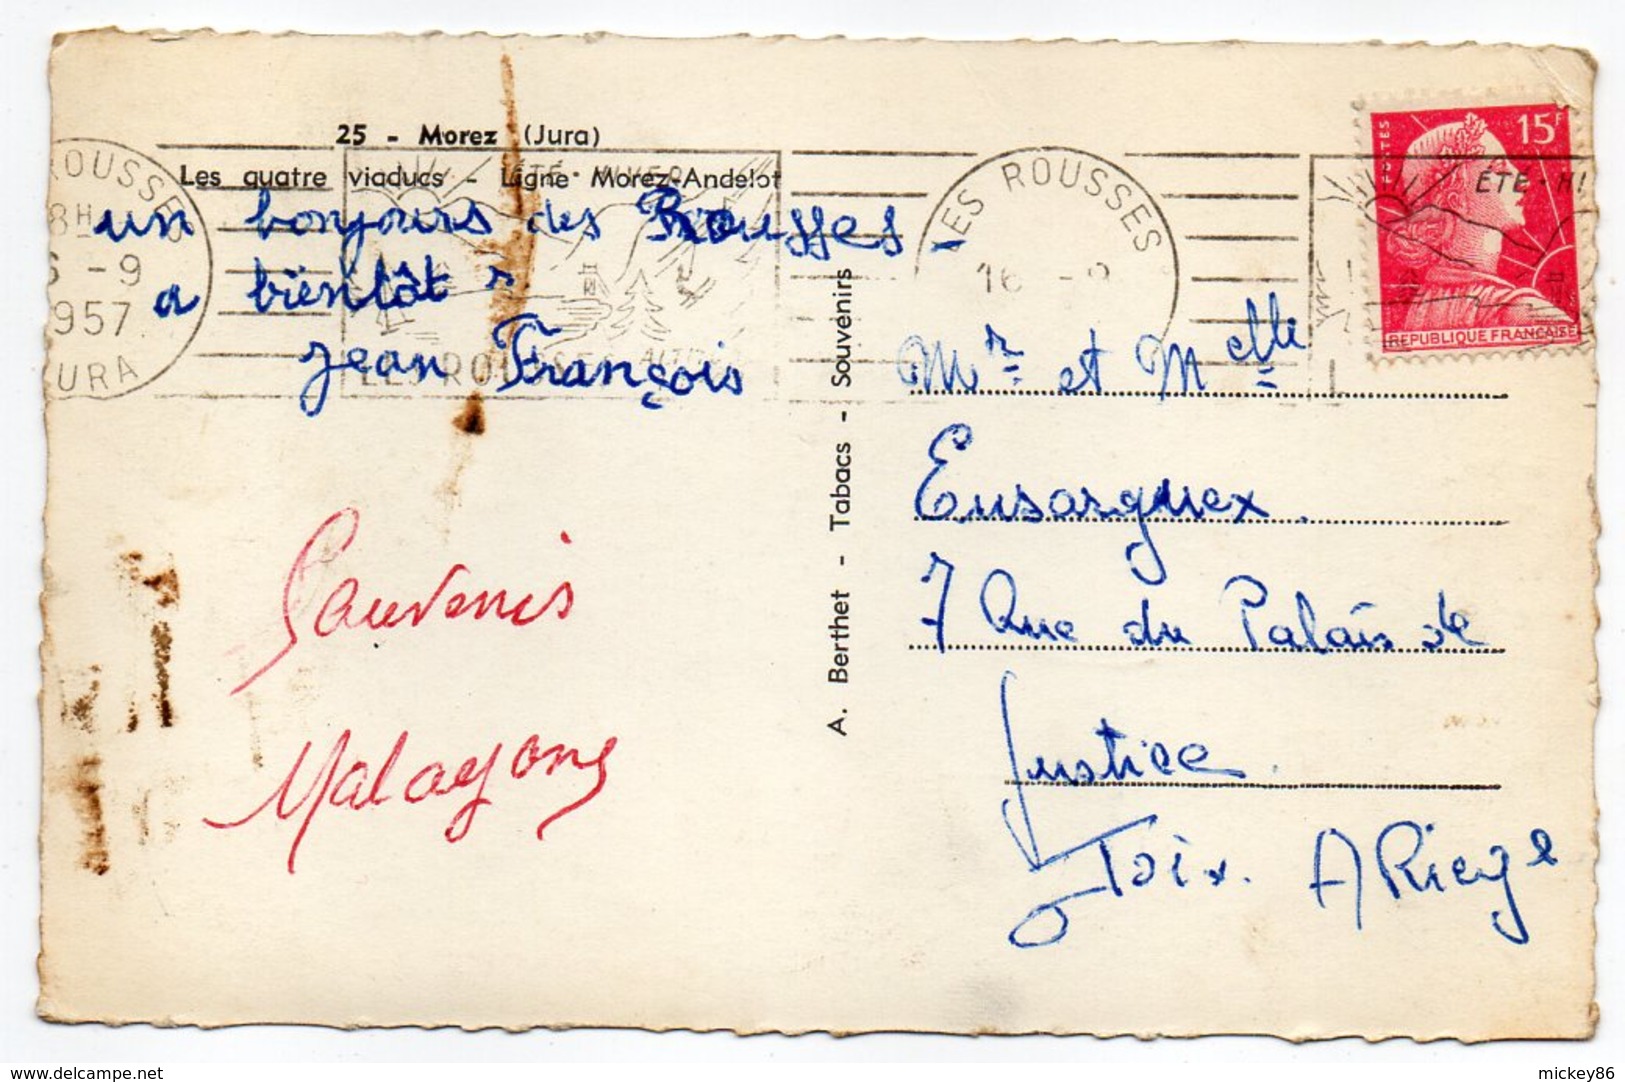 25 - Morez (Jura)
Les quatre viaducs - Ligne Morez-Andelot
un bonjours des Rousses -
a bientôt
Jean François
Souvenis
Malagong
A. Berthet - Tabacs - Souvenirs
LES ROUSSES
16 -9
ROUSSES
8H
6 -9
1957
JURA
ÉTÉ - HIVER
LES ROUSSES
POSTES
15F
REPUBLIQUE FRANCAISE
ÉTÉ - HI
Mr et Melle
Eusarguex.
7 Rue du Palais de
Justice.
Foix. ARiege
mickey86